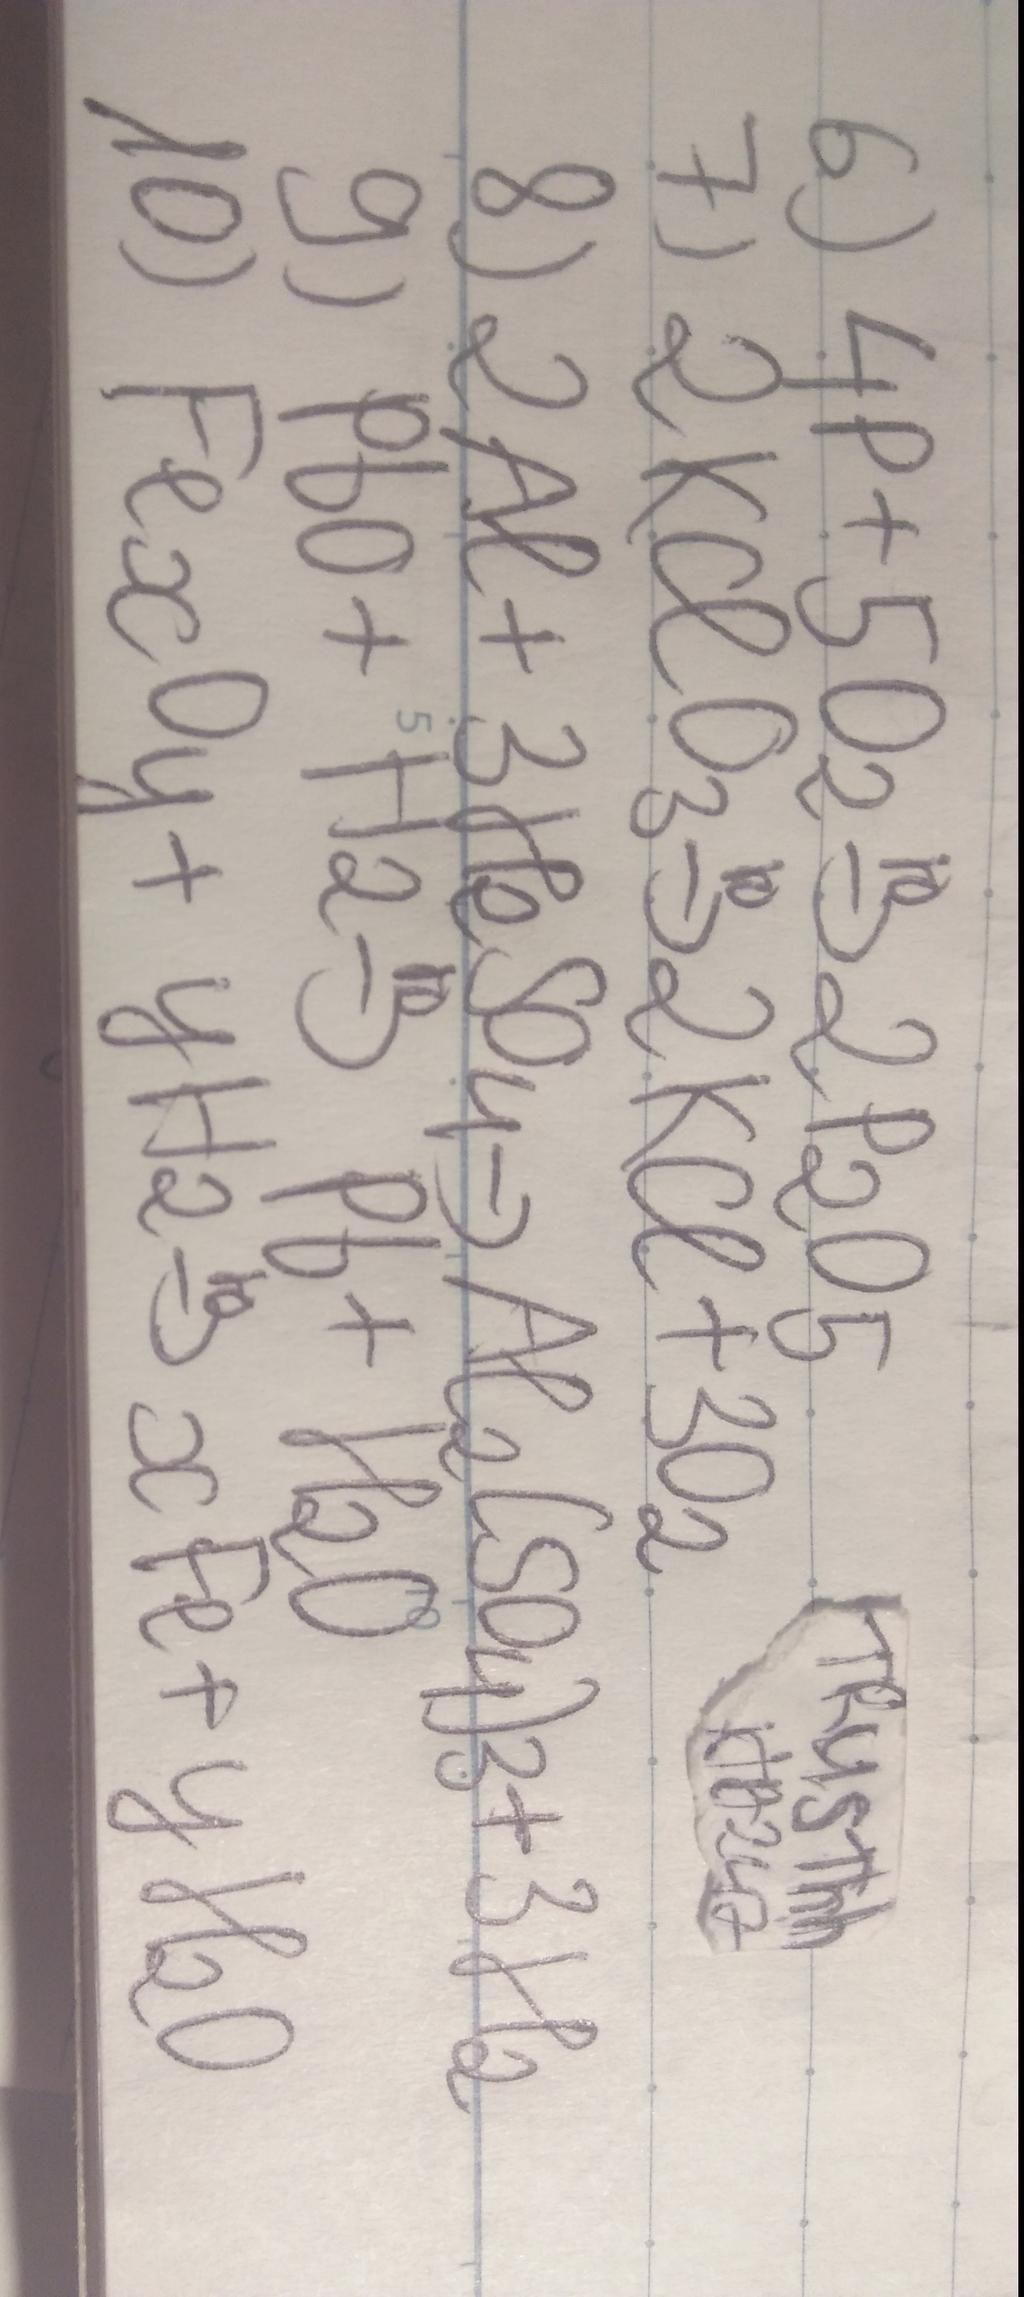 6) 4P + 5O2 -t°> 2P2O5
7) 2KClO3 -t°> 2KCl + 3O2
8) 2Al + 3H2SO4 -> Al2(SO4)3 + 3H2
9) PbO + H2 -t°> Pb + H2O
10) FexOy + yH2 -t°> xFe + yH2O
5
10